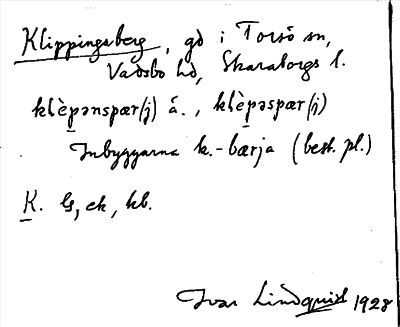 Klippingsberg, gd i Torsö sn,
Vadsbo hd, Skaraborgs l.
klèpənspær(j) á., klèpəspær(j)
Inbyggarna k.-bærja (best. pl.)
K. ls, ek, kb.
Ivar Lindquist 1928